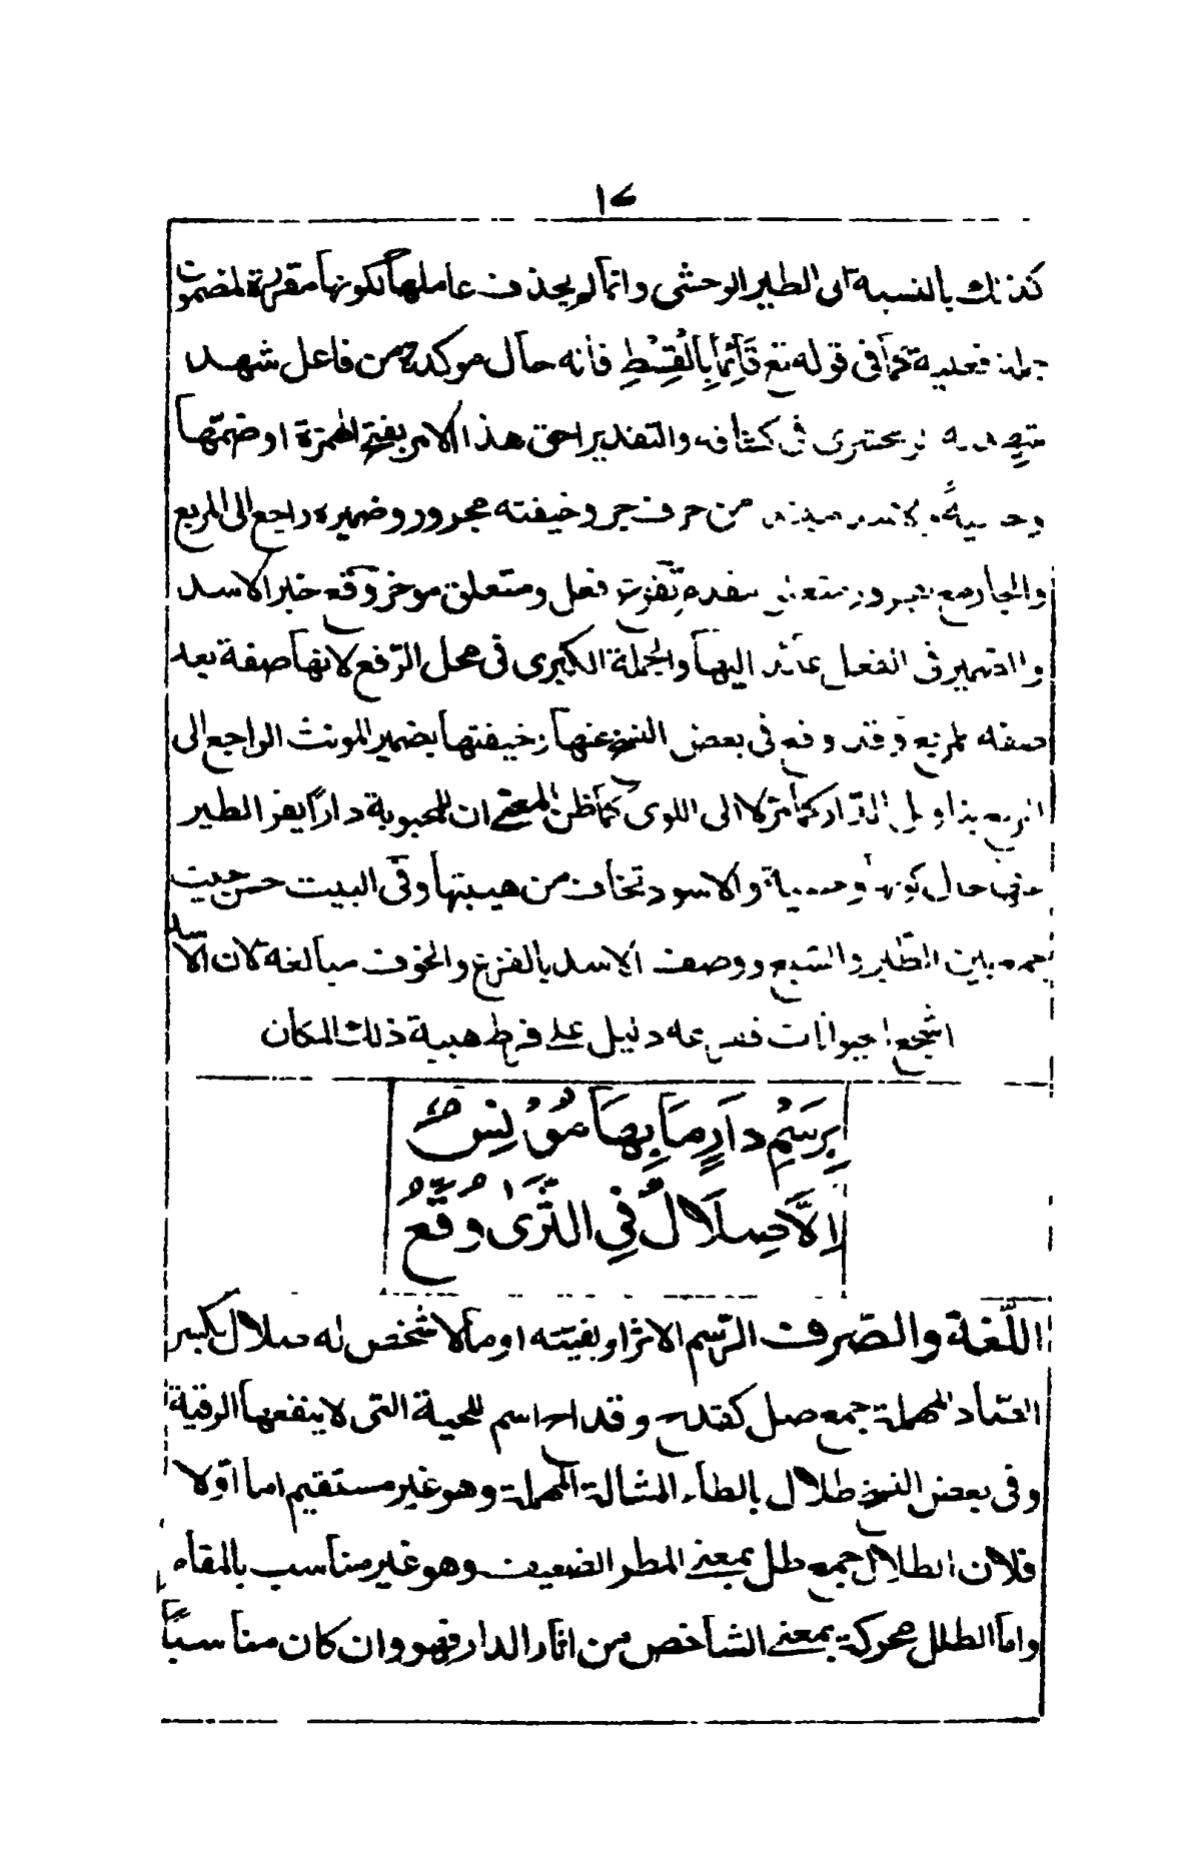 كذلك بالنسبة الى الطير الوحشى وانما لم يحذف عاملها لكونها مقررة لمضمون
جملة فعلية كما فى قوله تع قَائِماً بِالْقِسْطِ فانه حال موكدة من فاعل شهد
فى كشافه والتقدير احق هذا الامر بفتح الهمزة او ضمتها
من حرف جر وخيفته مجرور وضميره راجع الى المربع
والجار مع متعلق تفزع فعل ومتعلق موخر وقع خبر الاسد
والضمير فى الفعل عائد اليها والجملة الكبرى فى محل الرّفع لانها صفة بعد
صفة لمربع وقد وقع فى بعض النسخ عنها وخيفتها بضمير المونث الراجع الى
بتاويل الدار كما مرّ لا الى اللوى كما ظن المعنى ان للمحبوبة داراً يفر الطير
عنها حال كونها وحشية والاسود تخاف من هيبتها وفى البيت حسن حيث
جمع بين الطّير والسّبع ووصف الاسد بالفزع والخوف مبالغة لان الاسد
اشجع حيوانات دليل على فرط هيبة ذلك المكان
بِرَسْمِ دَارٍ مَا بِهَا مُوْنِسٌ
اِلَّا صِلَالٌ فِي الثَّرٰى وُقَّعُ
اللّغة والصّرف الرّسم الاثر او بقيته او مالا شخص له صلال بكسر
الصّاد المهملة جمع صل كقدح وقداح اسم للحية التى لا ينفعها الرقية
وفى بعض النسخ طلال بالطاء المشالة المهملة وهو غير مستقيم اما اوّلا
فلان الطلال جمع طل بمعنى المطر الضعيف وهو غير مناسب بالمقام
واما الطلل محركة بمعنى الشاخص من اثار الدار فهو وان كان مناسباً